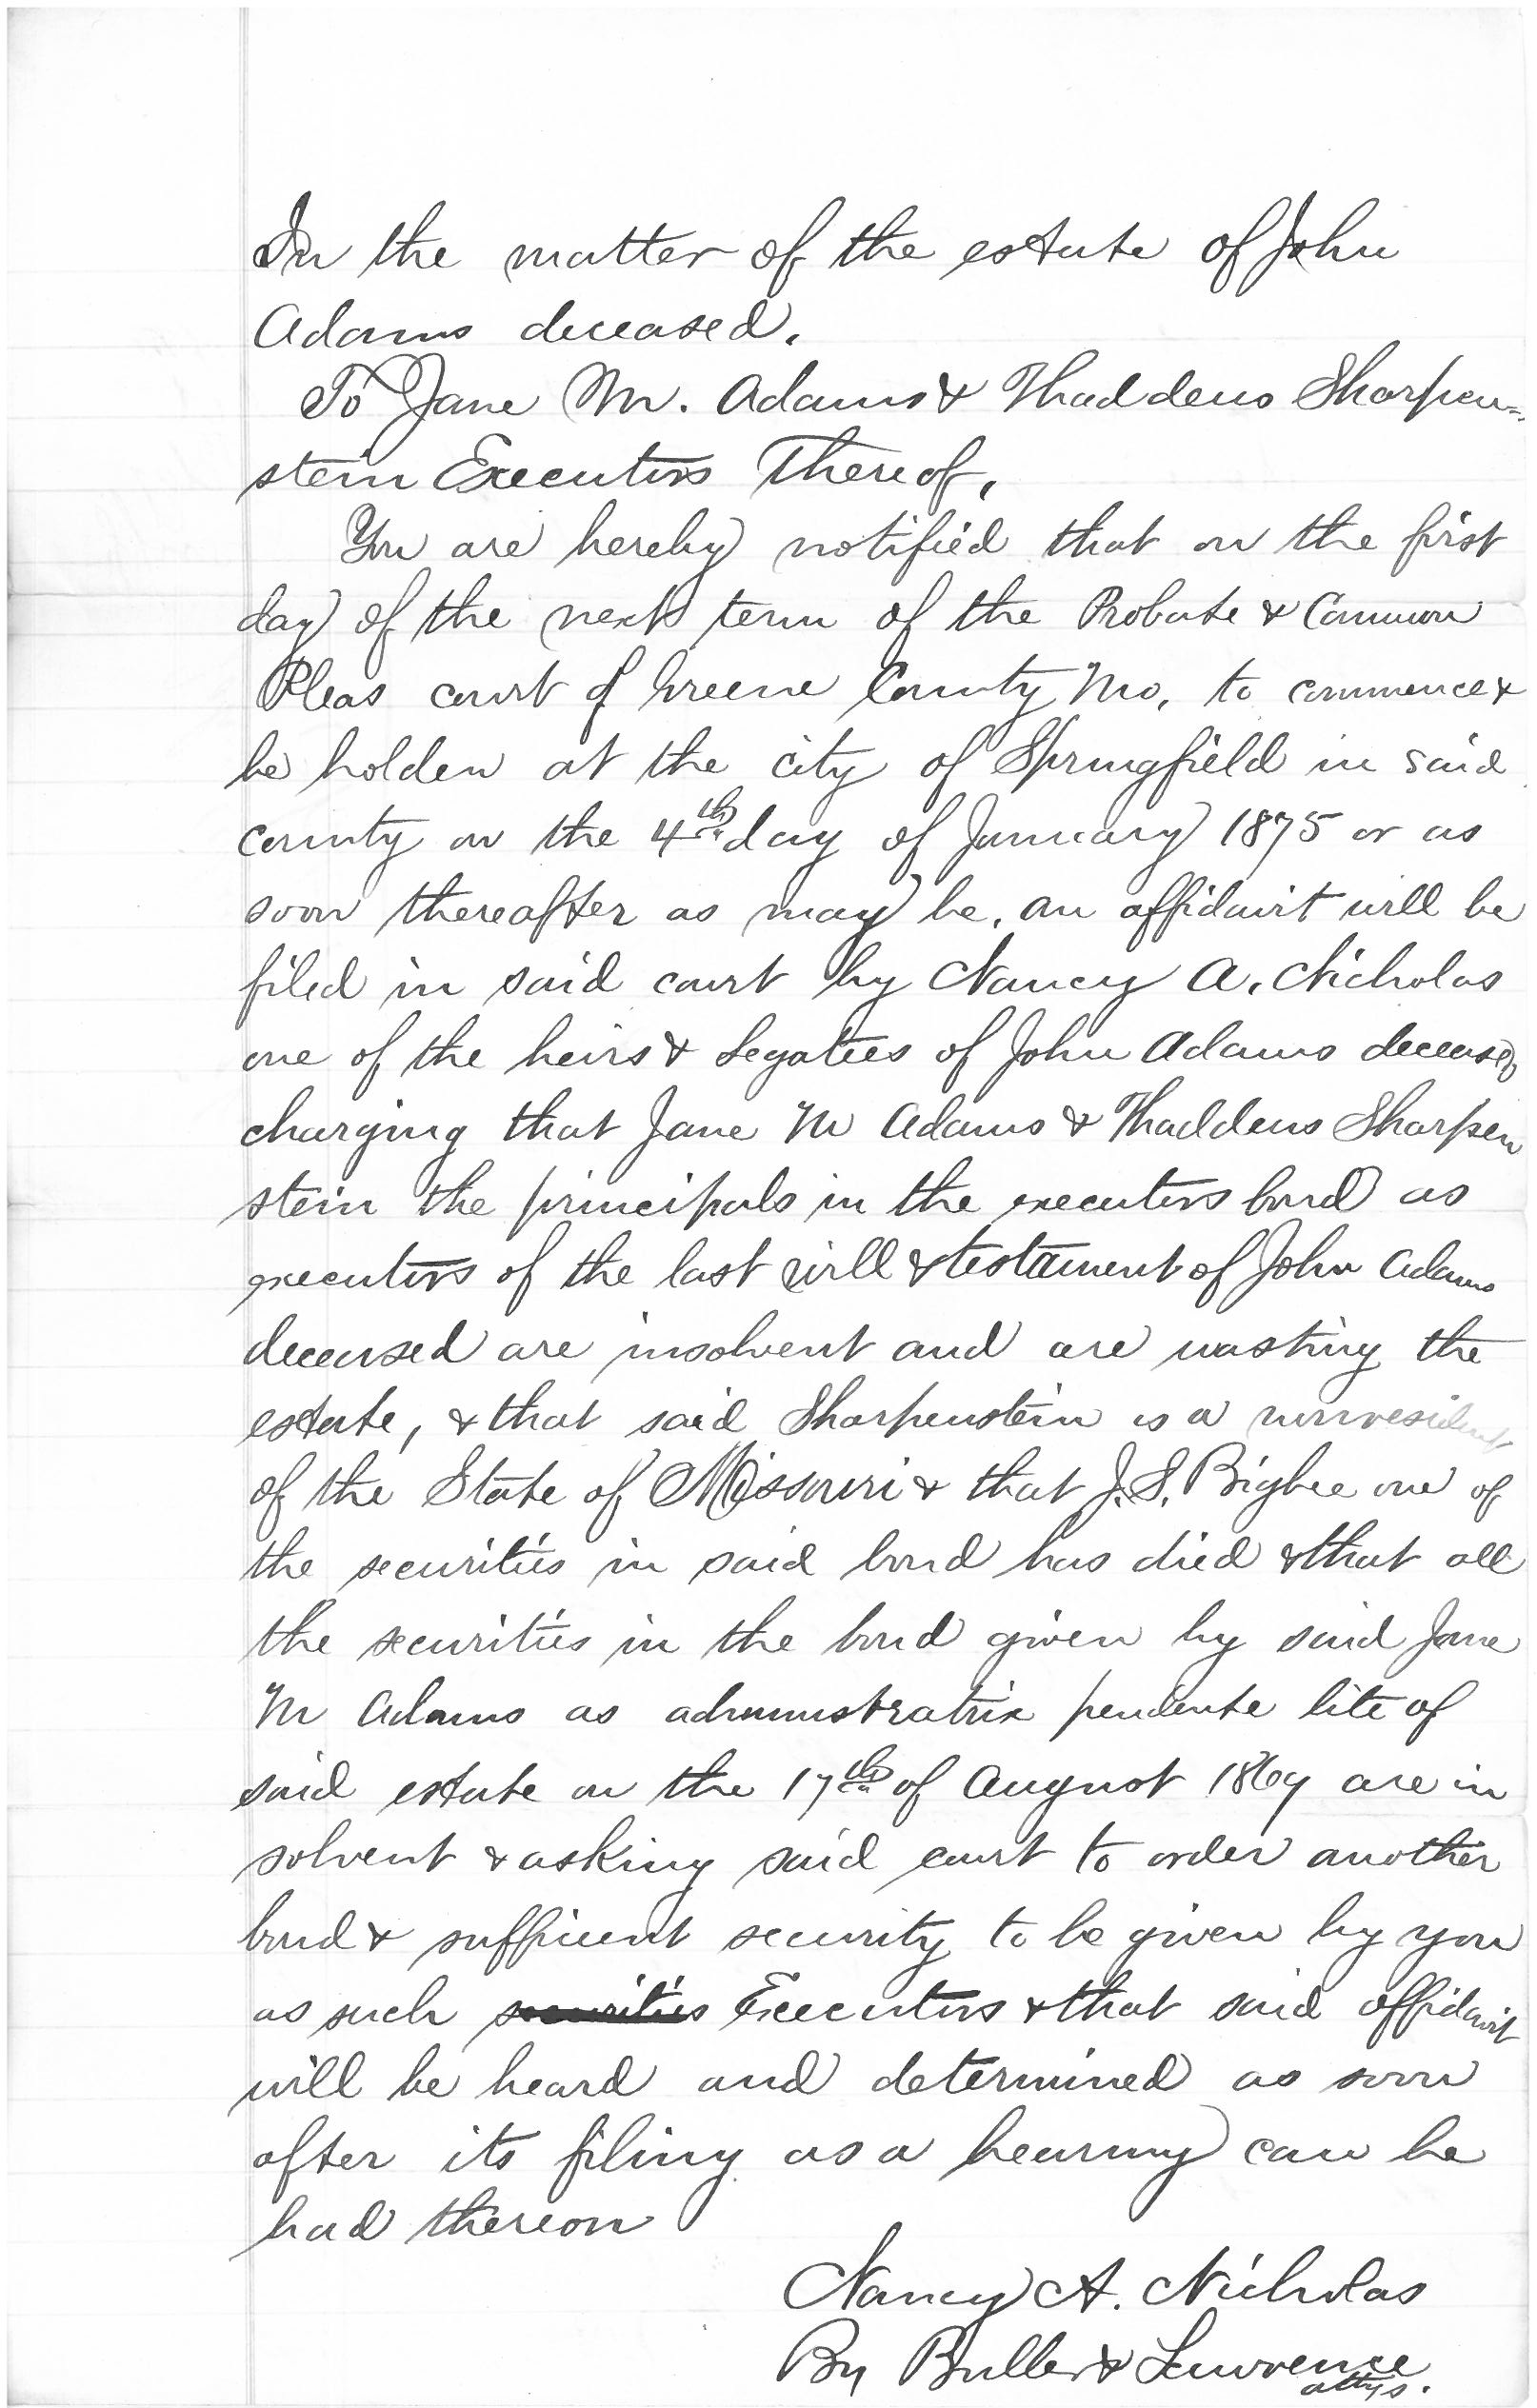 In the matter of the estate of John
Adams deceased.
To Jane M. Adams & Thaddeus Sharpen=
stein Executors Thereof,
You are hereby notified that on the first
day of the next term of the Probate & Common
Pleas court of Greene County Mo, to commence &
be holden at the city of Springfield in said
county on the 4th day of January 1875 or as
soon thereafter as may be, an affidavit will be
filed in said court by Nancy A. Nicholas
one of the heirs & Legatees of John Adams deceased
charging that Jane M Adams & Thaddeus Sharpen
stein the principals in the executors bond as
executors of the last will & testament of John Adams
deceased are insolvent and are wasting the
estate, & that said Sharpenstein is a nonresident
of the State of Missouri & that J. S. Bigbee one of
the securities in said bond has died & that all
the securities in the bond given by said Jane
M Adams as administratrix pendente lite of
said estate on the 17th of August 1869 are in
solvent & asking said court to order another
bond & sufficient security to be given by you
as such securities Executors & that said affidavit
will be heard and determined as soon
after its filing as a hearing can be
had thereon
Nancy A. Nicholas
By Buller & Lawrence
attys.